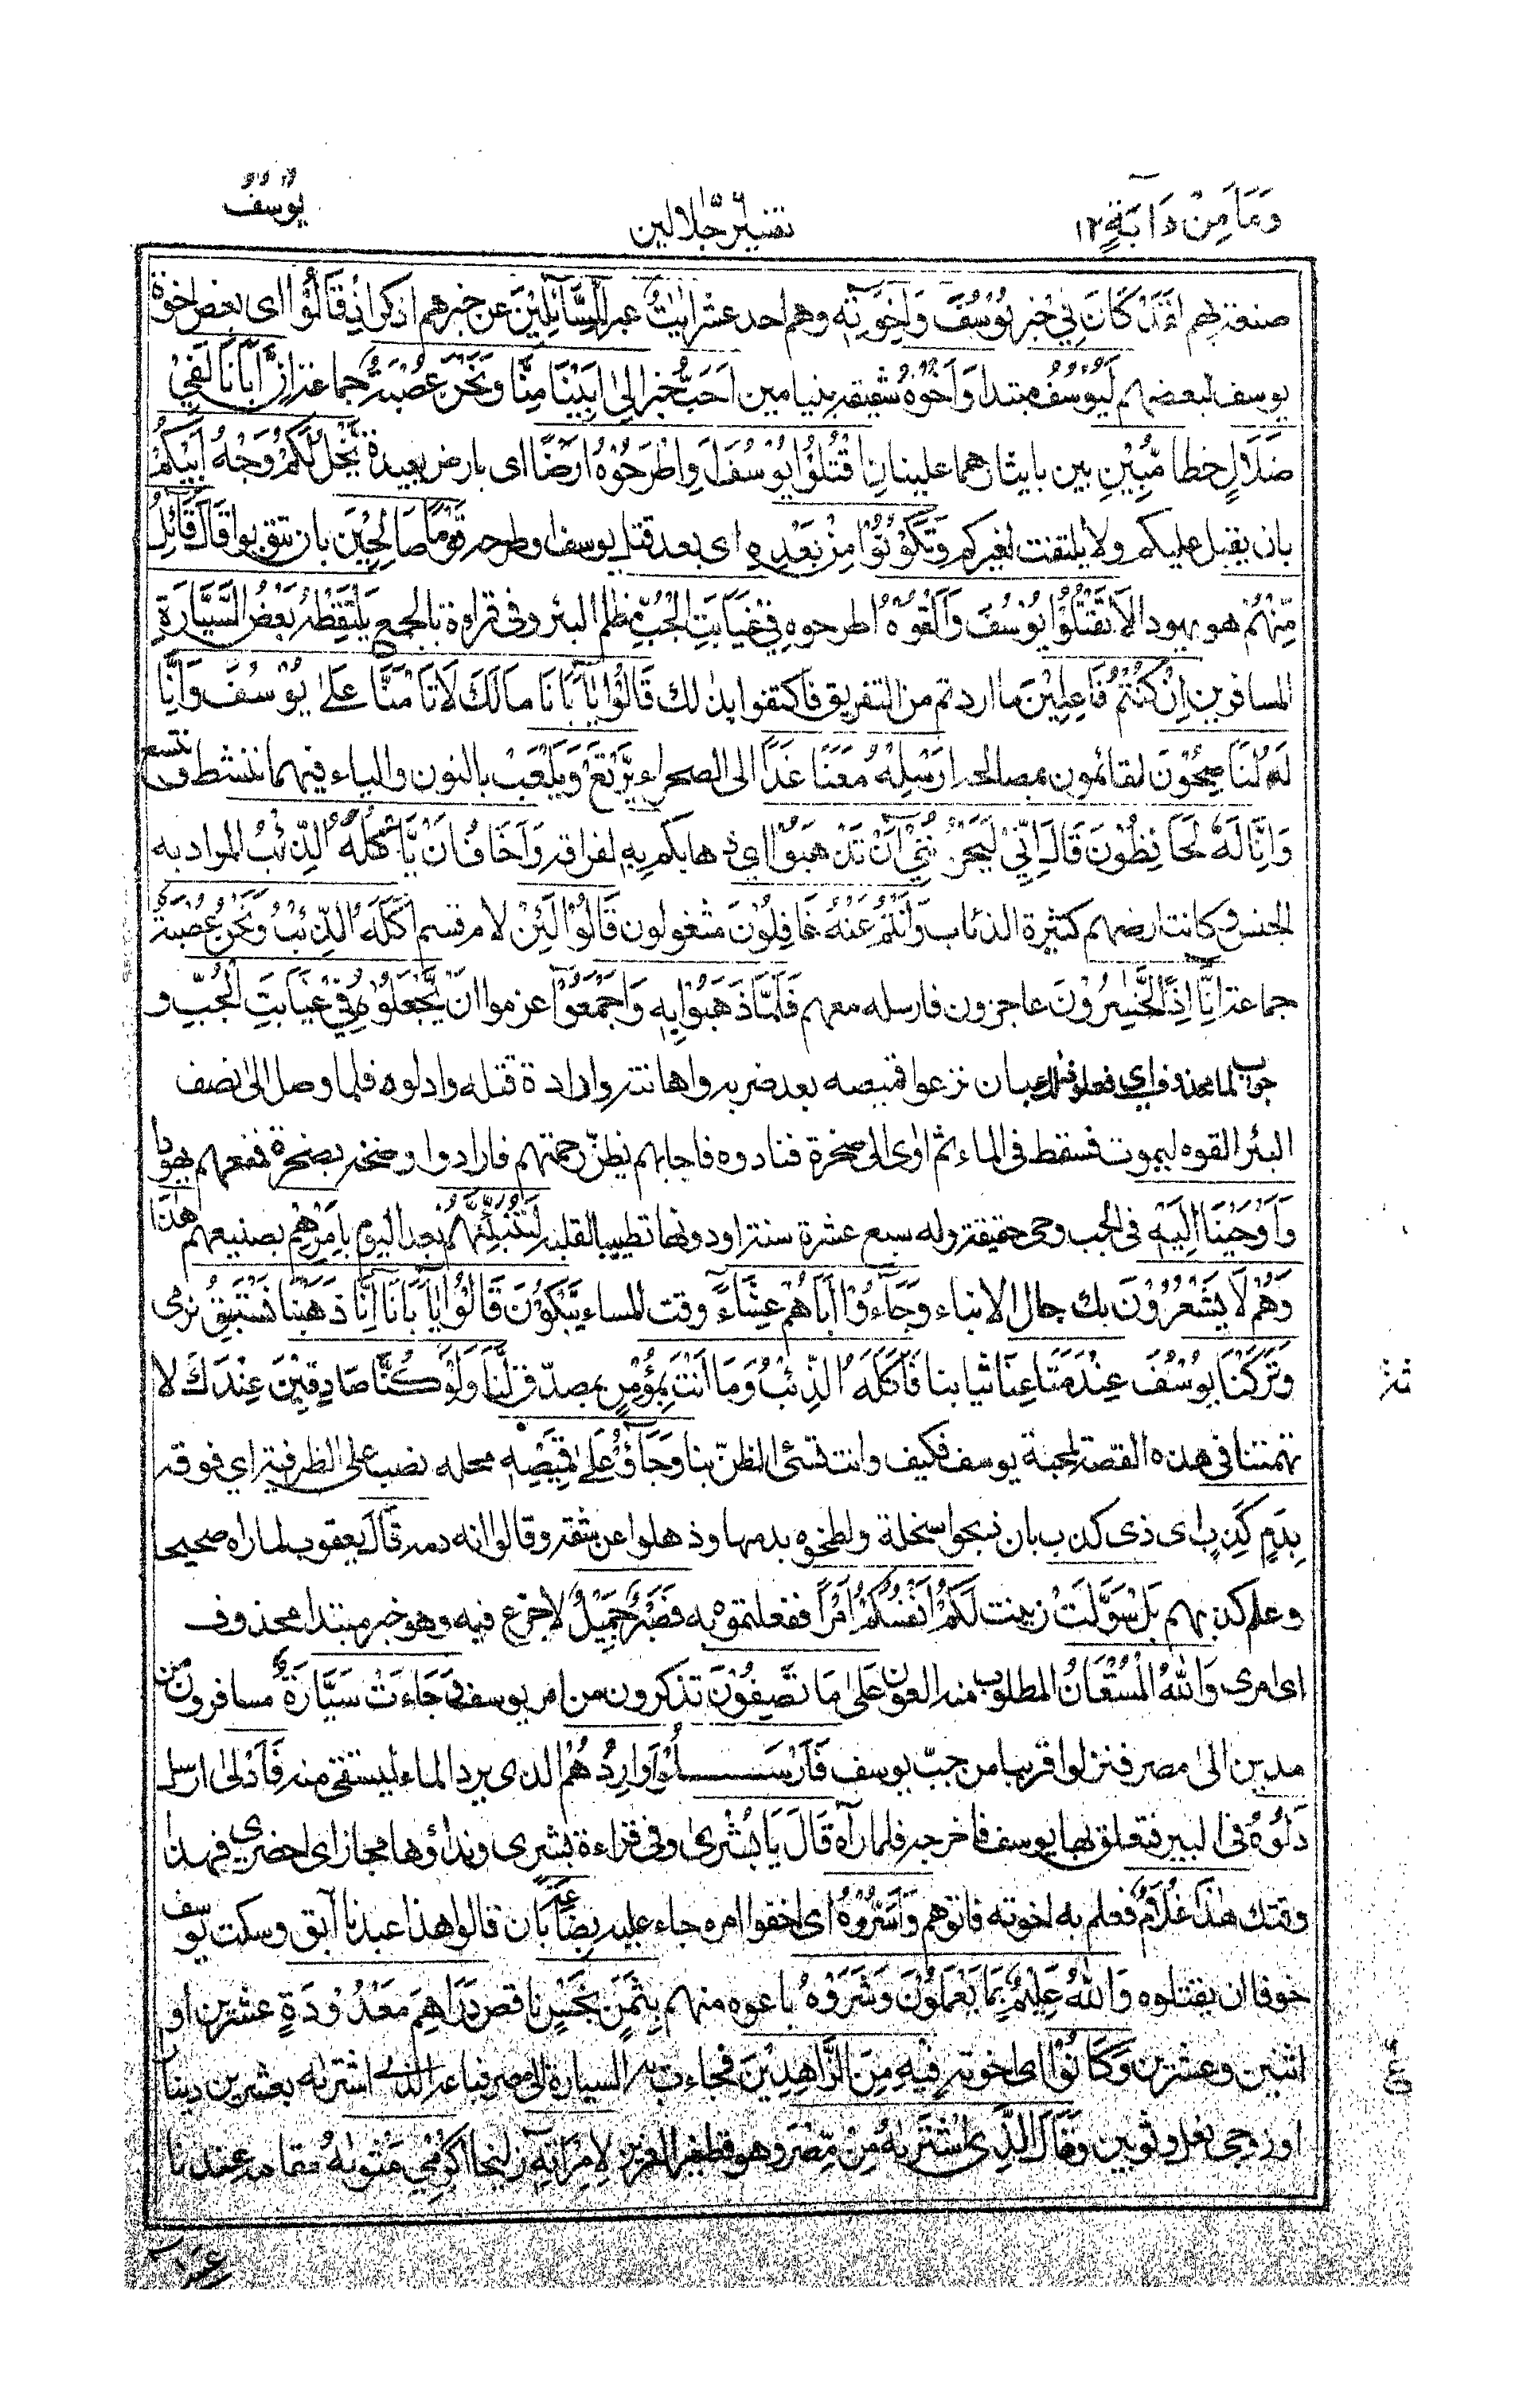 وَمَا مِنْ دَابَّةٍ ١٢
تفسير جلالين
يُوْسُفُ
صنعة بهم لَقَدْ كَانَ فِيْ خبر يُوْسُفَ وَاِخْوَتِهٖ وهم احد عشر اٰيٰتٌ عبر لِّلسَّآئِلِيْنَ عن خبرهم اذكر اِذْ قَالُوْا اى بعض اخوة
يوسف لبعضهم لَيُوْسُفُ مبتدا وَاَخُوْهُ شقيقه بنيامين اَحَبُّ خبر اِلٰى اَبِيْنَا مِنَّا وَنَحْنُ عُصْبَةٌ جماعة اِنَّ اَبَانَا لَفِيْ
ضَلَالٍ خطا مُّبِيْنٍ بين بايثارهما علينا نِ اقْتُلُوْا يُوْسُفَ اَوِ اطْرَحُوْهُ اَرْضًا اى بارض بعيدة يَّخْلُ لَكُمْ وَجْهُ اَبِيْكُمْ
بان يقبل عليكم ولا يلتفت لغيركم وَتَكُوْنُوْا مِنْۢ بَعْدِهٖ اى بعد قتل يوسف او طرحه قَوْمًا صَالِحِيْنَ بان تتوبوا قَالَ قَآئِلٌ
مِّنْهُمْ هو يهودا لَا تَقْتُلُوْا يُوْسُفَ وَاَلْقُوْهُ اطرحوه فِيْ غَيَابَتِ الْجُبِّ مظلم البئر وفى قراءة بالجمع يَلْتَقِطْهُ بَعْضُ السَّيَّارَةِ
المسافرين اِنْ كُنْتُمْ فَاعِلِيْنَ ما اردتم من التفريق فاكتفوا بذلك قَالُوْا يٰٓاَبَانَا مَا لَكَ لَا تَاْمَنَّا عَلٰى يُوْسُفَ وَاِنَّا
لَهٗ لَنَاصِحُوْنَ لقائمون بمصالحه اَرْسِلْهُ مَعَنَا غَدًا الى الصحراء يَّرْتَعْ وَيَلْعَبْ بالنون والياء فيهما ننشط و نتسع
وَاِنَّا لَهٗ لَحَافِظُوْنَ قَالَ اِنِّيْ لَيَحْزُنُنِيْٓ اَنْ تَذْهَبُوْا اى ذهابكم بِهٖ لفراقه وَاَخَافُ اَنْ يَّاْكُلَهُ الذِّئْبُ المراد به
الجنس وكانت ارضهم كثيرة الذئاب وَاَنْتُمْ عَنْهُ غَافِلُوْنَ مشغولون قَالُوْا لَئِنْ لام قسم اَكَلَهُ الذِّئْبُ وَنَحْنُ عُصْبَةٌ
جماعة اِنَّآ اِذًا لَّخٰسِرُوْنَ عاجزون فارسله معهم فَلَمَّا ذَهَبُوْا بِهٖ وَاَجْمَعُوْٓا عزموا اَنْ يَّجْعَلُوْهُ فِيْ غَيَابَتِ الْجُبِّ و
جواب لما محذوف اى فعلوا ذلك بان نزعوا قميصه بعد ضربه واهانته وارادة قتله وادلوه فلما وصل الى نصف
البئر القوه ليموت فسقط فى الماء ثم اوى الى صخرة فنادوه فاجابهم يظنّ رحمتهم فارادوا رضخه بصخرة فمنعهم يهودا
وَاَوْحَيْنَآ اِلَيْهِ فى الجب وحى حقيقة وله سبع عشرة سنة او دونها تطييبا لقلبه لَتُنَبِّئَنَّهُمْ بعد اليوم بِاَمْرِهِمْ بصنيعهم هٰذَا
وَهُمْ لَا يَشْعُرُوْنَ بك حال الانباء وَجَآءُوْٓا اَبَاهُمْ عِشَآءً وقت المساء يَّبْكُوْنَ قَالُوْا يٰٓاَبَانَآ اِنَّا ذَهَبْنَا نَسْتَبِقُ نرمى
وَتَرَكْنَا يُوْسُفَ عِنْدَ مَتَاعِنَا ثيابنا فَاَكَلَهُ الذِّئْبُ وَمَآ اَنْتَ بِمُؤْمِنٍ بمصدّق لَّنَا وَلَوْ كُنَّا صَادِقِيْنَ عِنْدَكَ لا
تهمتنا فى هذه القصة لمحبة يوسف فكيف وانت تسئ الظنّ بنا وَجَآءُوْ عَلٰى قَمِيْصِهٖ محله نصب على الظرفية اى فوقه
بِدَمٍ كَذِبٍ اى ذى كذب بان ذبحوا سخلة ولطخوه بدمها وذهلوا عن شقه وقالوا انه دمه قَالَ يعقوب لما راه صحيحا
وعلم كذبهم بَلْ سَوَّلَتْ زينت لَكُمْ اَنْفُسُكُمْ اَمْرًا ففعلتموه به فَصَبْرٌ جَمِيْلٌ لا جزع فيه وهو خبر مبتدا محذوف
اى امرى وَاللّٰهُ الْمُسْتَعَانُ المطلوب منه العون عَلٰى مَا تَصِفُوْنَ تذكرون من امر يوسف وَجَآءَتْ سَيَّارَةٌ مسافرون من
مدين الى مصر فنزلوا قريبا من جبّ يوسف فَاَرْسَلُوْا وَارِدَهُمْ الذى يرد الماء ليستقى منه فَاَدْلٰى ارسل
دَلْوَهٗ فى البير فتعلق بها يوسف فاخرجه فلما رآه قَالَ يَا بُشْرٰى وفى قراءة بشرى ونداؤها مجاز اى احضرى فهذا
وقتك هٰذَا غُلَامٌ فعلم به اخوته فاتوهم وَاَسَرُّوْهُ اى اخفوا امره جاعليه بِضَاعَةً بان قالوا هذا عبدنا آبق وسكت يوسف
خوفا ان يقتلوه وَاللّٰهُ عَلِيْمٌۢ بِمَا يَعْمَلُوْنَ وَشَرَوْهُ باعوه منهم بِثَمَنٍۢ بَخْسٍ ناقص دَرَاهِمَ مَعْدُوْدَةٍ عشرين او
اثنين وعشرين وَكَانُوْا اى اخوته فِيْهِ مِنَ الزَّاهِدِيْنَ فجاءت به السيارة الى مصر فباعه الذى اشتراه بعشرين دينارا
او زوجى نعل وثوبين وَقَالَ الَّذِى اشْتَرٰىهُ مِنْ مِّصْرَ وهو قطفير العزيز لِامْرَاَتِهٖٓ زليخا اَكْرِمِيْ مَثْوٰىهُ مقامه عندنا